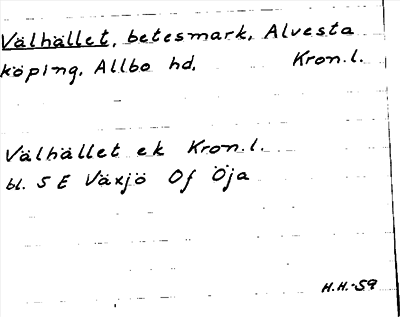 Välhället, betesmark, Alvesta
köping, Allbo hd, Kron.l.
Välhället ek Kron.l.
bl. 5 E Växjö Of Öja
H.H.-59